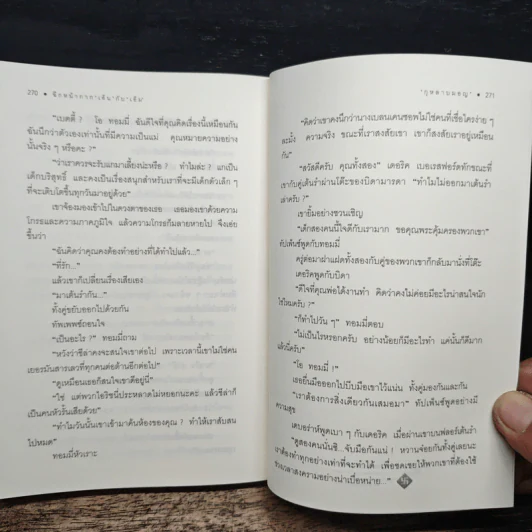 270 ★
"เบตตี้ ? โอ ทอมมี่ ฉันดีใจที่คุณคิดเรื่องนี้เหมือนกัน
ฉันนึกว่าตัวเองเท่านั้นที่มีความเป็นแม่ คุณหมายความอย่าง
นั้นจริง ๆ หรือคะ ?"
"ว่าเราควรจะรับแกมาเลี้ยงน่ะหรือ ? ทำไมล่ะ ? แกเป็น
เด็กบริสุทธิ์ และคงเป็นเรื่องสนุกสำหรับเราที่จะมีเด็กตัวเล็ก ๆ
ที่จะเติบโตขึ้นทุกวันมาอยู่ด้วย"
เขาจ้องมองเข้าไปในดวงตาของเธอ เธอมองเขาด้วยความ
โกรธและความภาคภูมิใจ แล้วความโกรธก็มลายหายไป จึงเอ่ย
ขึ้นว่า
"ฉันคิดว่าคุณคงต้องทำอย่างที่ได้ทำไปแล้ว..."
"ที่รัก..."
แล้วเขาก็เปลี่ยนเรื่องเสียเอง
"มาเต้นรำกัน..."
ทั้งคู่ขยับออกไปด้วยกัน
ทัพเพพซ์ถอนใจ
"เป็นอะไร ?" ทอมมี่ถาม
"หวังว่าชีล่าคงจะเป็นสุขต่อไป เพราะเวลานี้เขาไม่ใช่คน
เยอรมันสารเลวที่ทุกคนต่อต้านอีกต่อไป"
"ดูเหมือนเธอก็สนใจเขาดีอยู่นี่"
"ใช่ แต่พวกไอริชนี่ประหลาดไม่หยอกนะคะ แล้วชีล่าก็
เป็นคนหัวรั้นเสียด้วย"
"ทำไมวันนั้นเขาเข้ามาค้นห้องของคุณ ? ทำให้เราสับสน
ไปหมด"
ทอมมี่หัวเราะ
"กุหลาบผลาญ" ★ 271
"คิดว่าเขาคงนึกว่านางเบลนเคนซอพไม่ใช่คนที่เชื่อใครง่าย ๆ
ละมั้ง ความจริง ขณะที่เราสงสัยเขา เขาก็สงสัยเราอยู่เหมือน
กัน"
"สวัสดีครับ คุณทั้งสอง" เดอริค เบอเรสฟอร์ดทักขณะที่
เขากับคู่เต้นรำผ่านโต๊ะของบิดามารดา "ทำไมไม่ออกมาเต้นรำ
ล่ะครับ ?"
เขายิ้มอย่างชวนเชิญ
"เด็กสองคนนี้ใจดีกับเรามาก ขอคุณพระคุ้มครองพวกเขา"
ทัปเพ้นซ์พูดกับทอมมี่
ครู่ต่อมาฝาแฝดทั้งสองกับคู่ของพวกเขาก็กลับมานั่งที่โต๊ะ
เดอริคพูดกับบิดา
"ดีใจที่คุณพ่อได้งานทำ คิดว่าคงไม่ค่อยมีอะไรน่าสนใจนัก
ใช่ไหมครับ ?"
"ก็ทำไปวัน ๆ" ทอมมี่ตอบ
"ไม่เป็นไรหรอกครับ อย่างน้อยก็มีอะไรทำ แค่นั้นก็ดีมาก
แล้วนี่ครับ"
"โอ ทอมมี่ !"
เธอยื่นมือออกไปบีบมือเขาไว้แน่น ทั้งคู่มองกันและกัน
"เราต้องการสิ่งเดียวกันเสมอมา" ทัปเพ้นซ์พูดอย่างมี
ความสุข
เดบอร่าห์พูดเบา ๆ กับเดอริค เมื่อผ่านเขาบนฟลอร์เต้นรำ
"ดูสองคนนั่นซี...จับมือกันแน่ ! หวานจ๋อยกันทั้งคู่เลยนะ
เราต้องทำทุกอย่างเท่าที่จะทำได้ เพื่อชดเชยให้พวกเขาที่ต้องใช้
ช่วงเวลาสงครามอย่างน่าเบื่อหน่าย..."